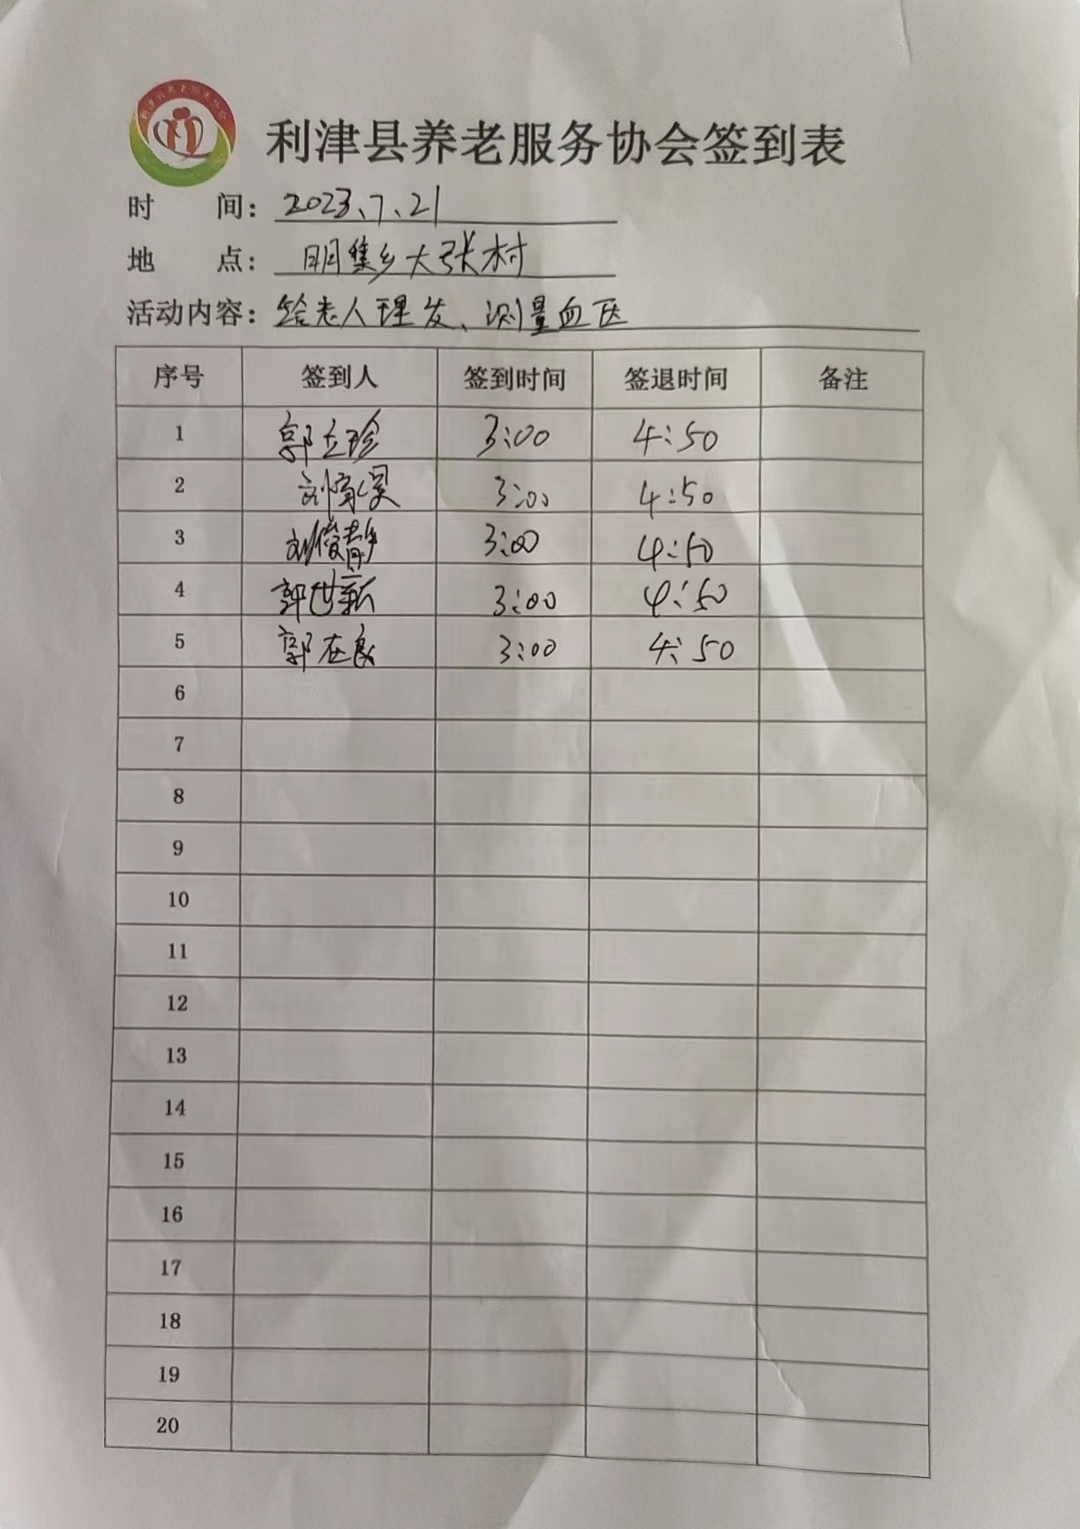 利津县养老服务协会签到表
时 间: 2023、7、21
地 点: 明集乡大张村
活动内容: 给老人理发、测量血压
序号 签到人 签到时间 签退时间 备注
1 郭立珍 3:00 4:50
2 3:00 4:50
3 刘俊静 3:00 4:50
4 郭世新 3:00 4:50
5 郭在良 3:00 4:50
6
7
8
9
10
11
12
13
14
15
16
17
18
19
20